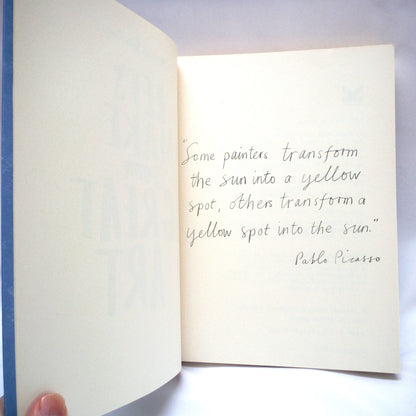 "Some painters transform
the sun into a yellow
spot, others transform a
yellow spot into the sun."
Pablo Picasso